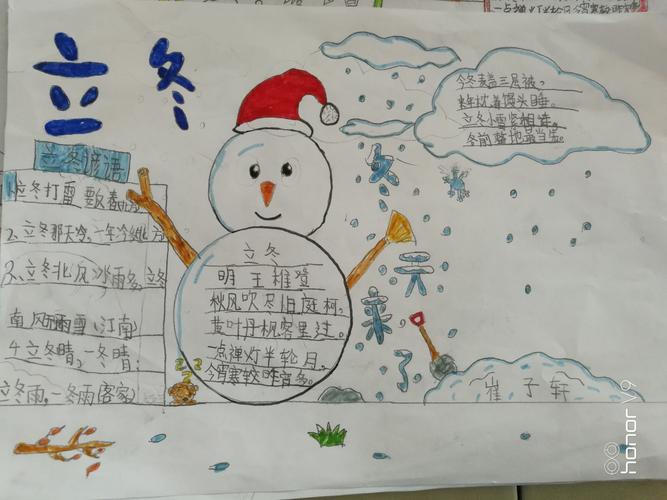 立冬
立冬谚语
1、立冬打雷 要反春(北方)
2、立冬那天冷,一年冷
3、立冬北风冰雨多,立冬
南风雨雪(江南)
4、立冬晴,一冬晴;
立冬雨,一冬雨(客家)
立冬
明 王稚登
秋风吹尽旧庭柯,
黄叶丹枫客里过。
一点禅灯半轮月,
今宵寒较昨宵多。
今冬麦盖三层被,
来年枕着馒头睡。
立冬小雪紧相连,
冬前整地最当先。
冬
天
来
了
崔子轩
honor V9
一点禅灯半轮月今宵寒较昨宵